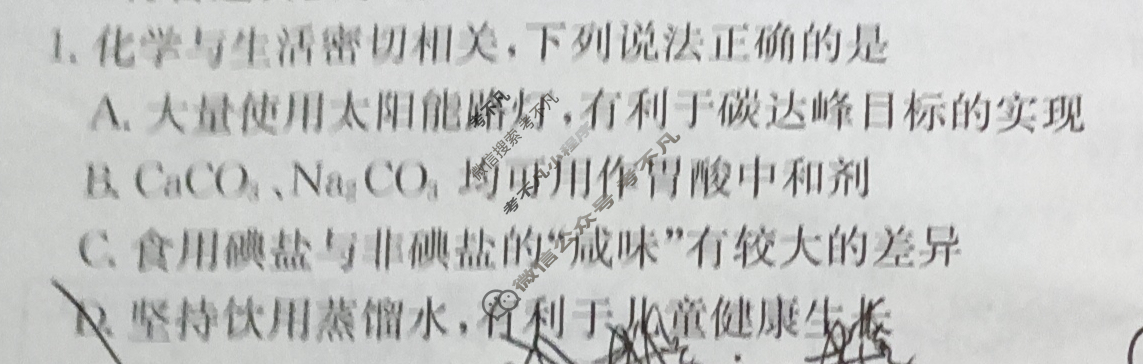 1. 化学与生活密切相关,下列说法正确的是
A. 大量使用太阳能路灯,有利于碳达峰目标的实现
B. CaCO₃、Na₂CO₃ 均可用作胃酸中和剂
C. 食用碘盐与非碘盐的“咸味”有较大的差异
D. 坚持饮用蒸馏水,有利于儿童健康生长
考不凡
微信搜索 考不凡
考不凡小程序
微信公众号 考不凡